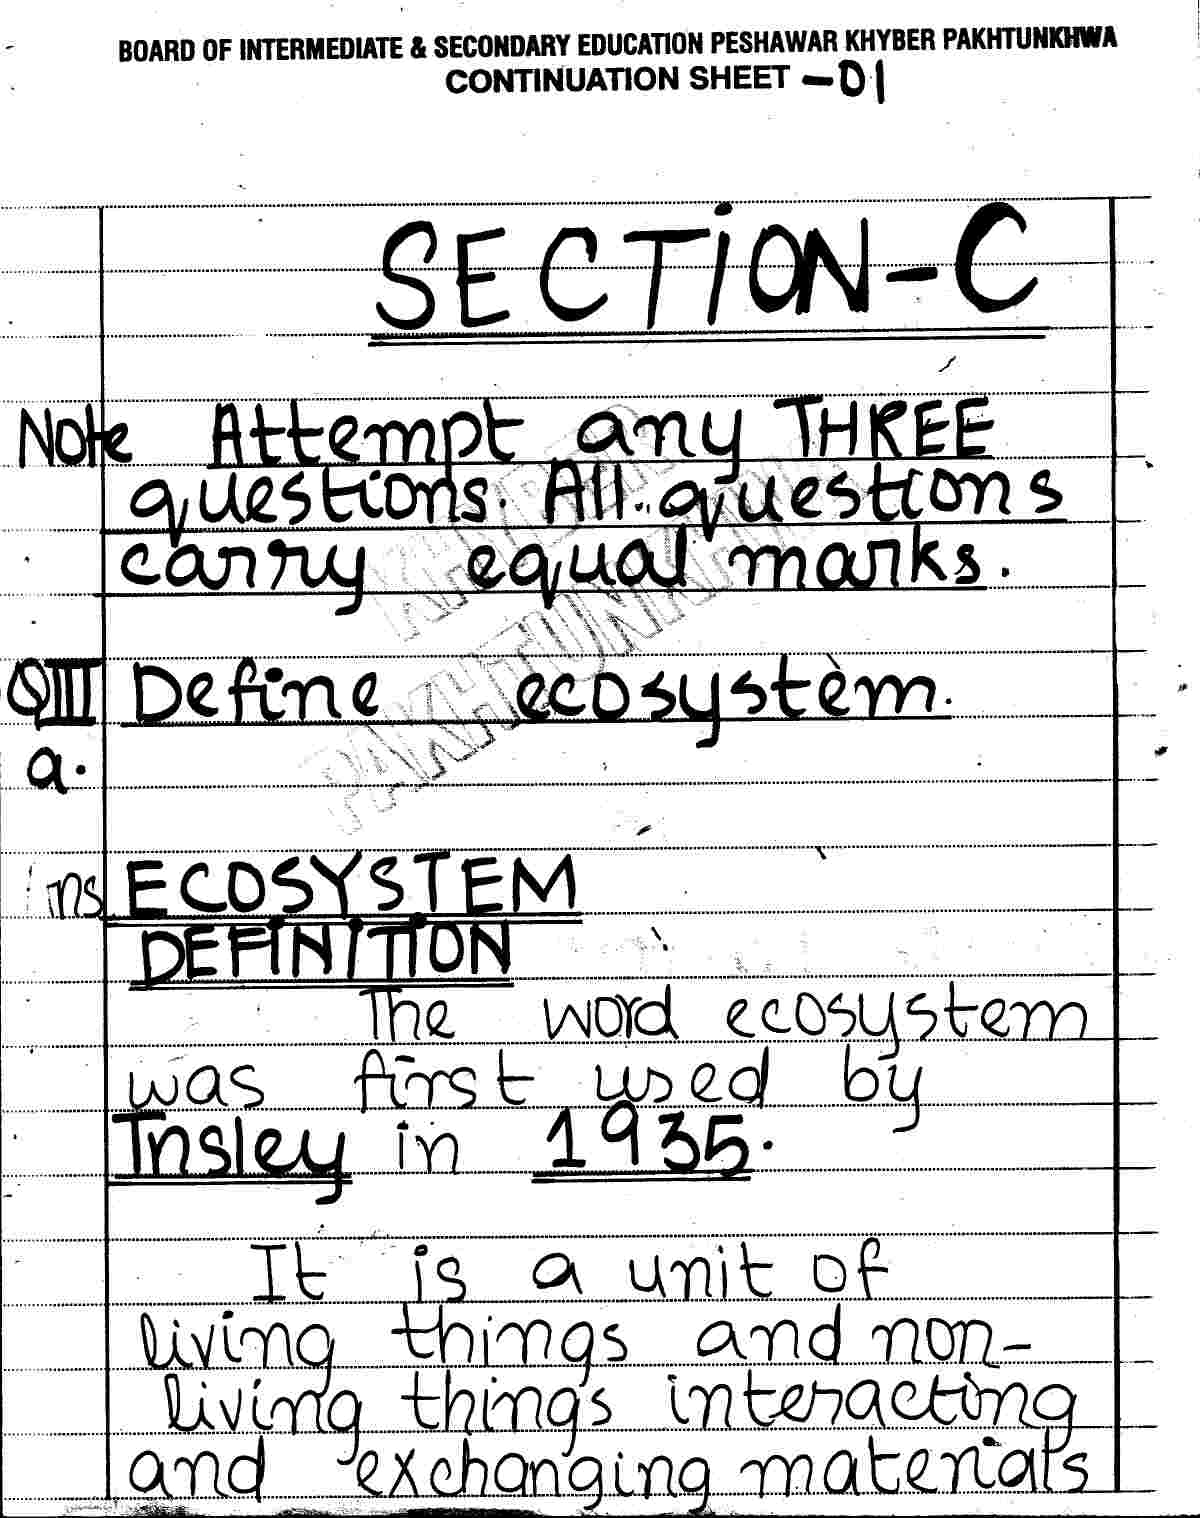 BOARD OF INTERMEDIATE & SECONDARY EDUCATION PESHAWAR KHYBER PAKHTUNKHWA
CONTINUATION SHEET -01
SECTION-C
Note Attempt any THREE
questions. All questions
carry equal marks.
QIII Define ecosystem.
a.
Ans ECOSYSTEM
DEFINITION
The word ecosystem
was first used by
Tnsley in 1935.
It is a unit of
living things and non-
living things interacting
and exchanging materials
KHYBER
PAKHTUNKHWA